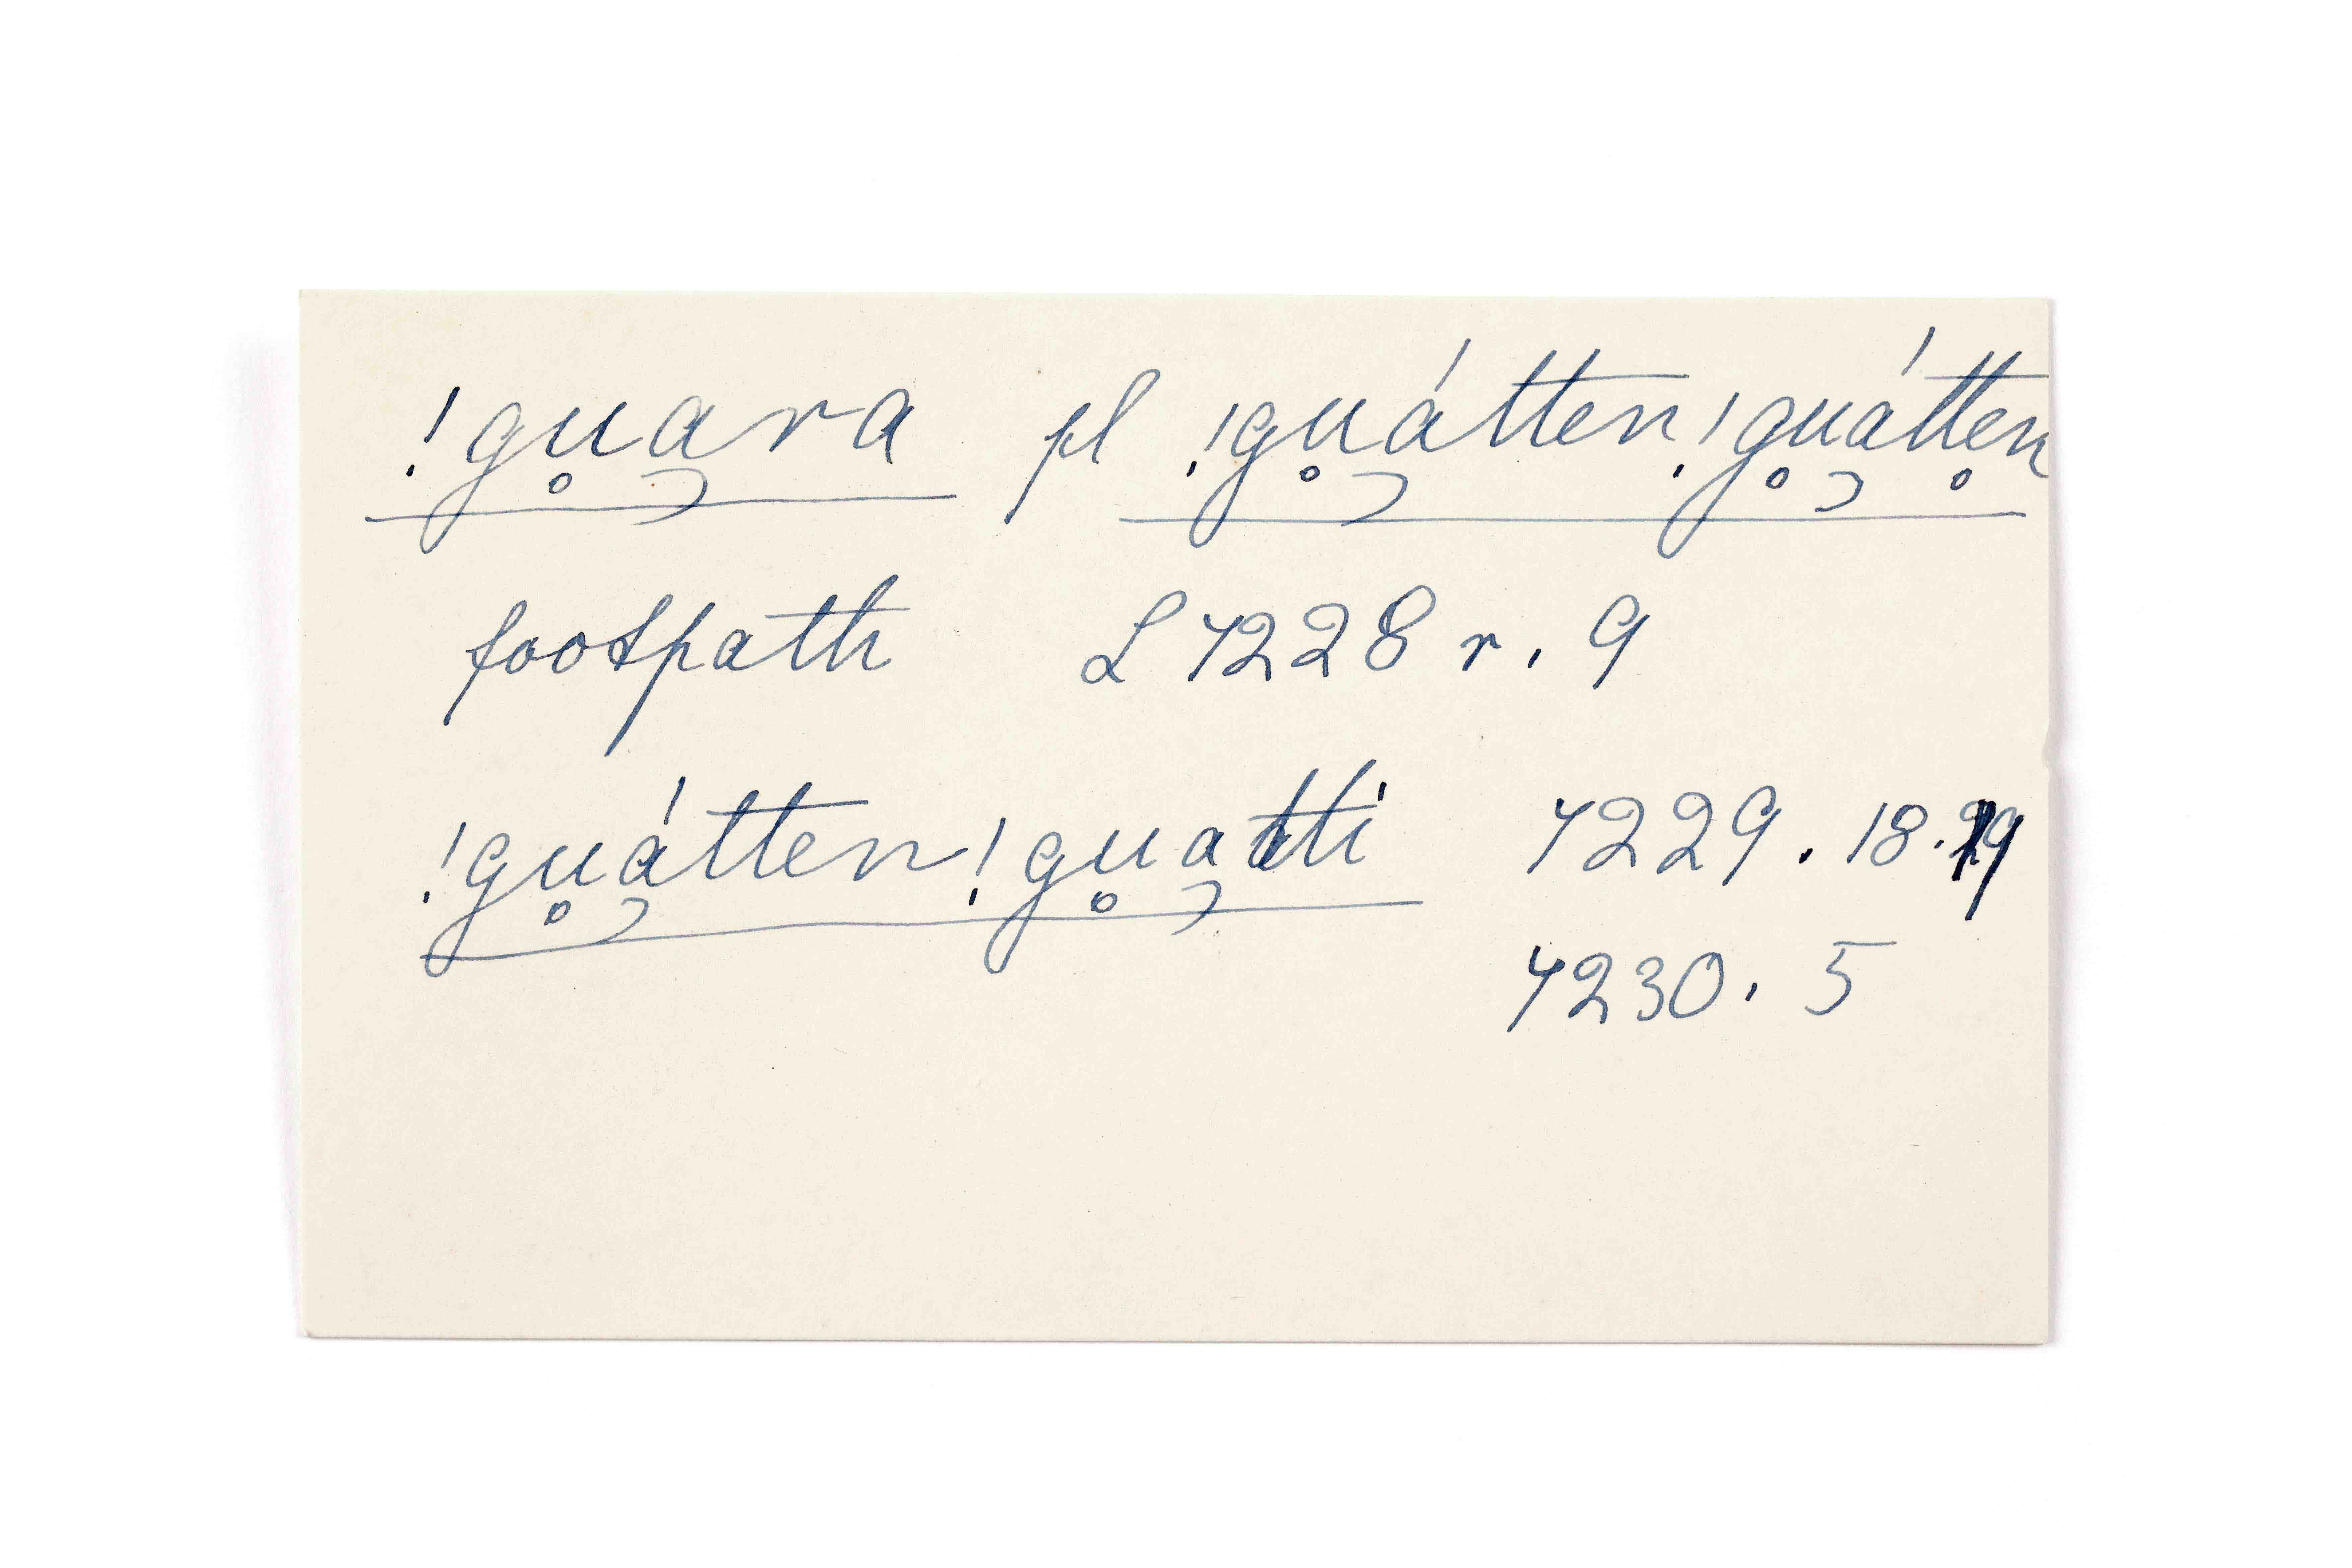 !gu̥a̡ra pl !gu̥á̡tten!gu̥á̡tte̥n
footpath L 4228 r. 9
!gu̥á̡tten!gu̥a̡tti 4229. 18.19
4230. 5